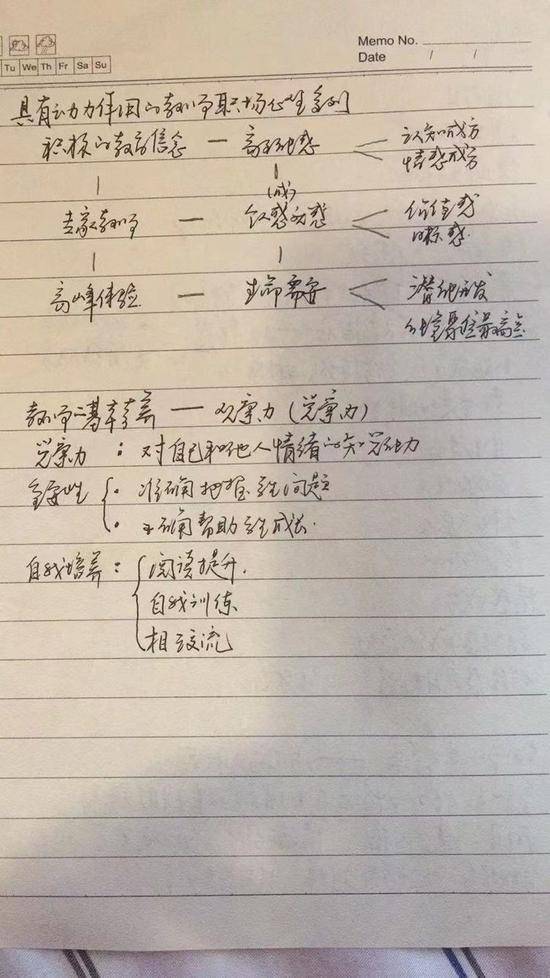 Memo No.
Date / /
Tu We Th Fr Sa Su
具有动力作用的教师职场心理系列
积极的教育信念 — 高效能感 认知成分
情感成分
(成)
专家教师 — 价值感
目标感
高峰体验 — 生命需要 潜能开发
教师之基本素养 — 观察力 (觉察力)
觉察力 : 对自己和他人情绪的知觉能力
· 准确把握学生问题
· 正确帮助学生成长.
自我培养 : 阅读提升.
自我训练
相互交流